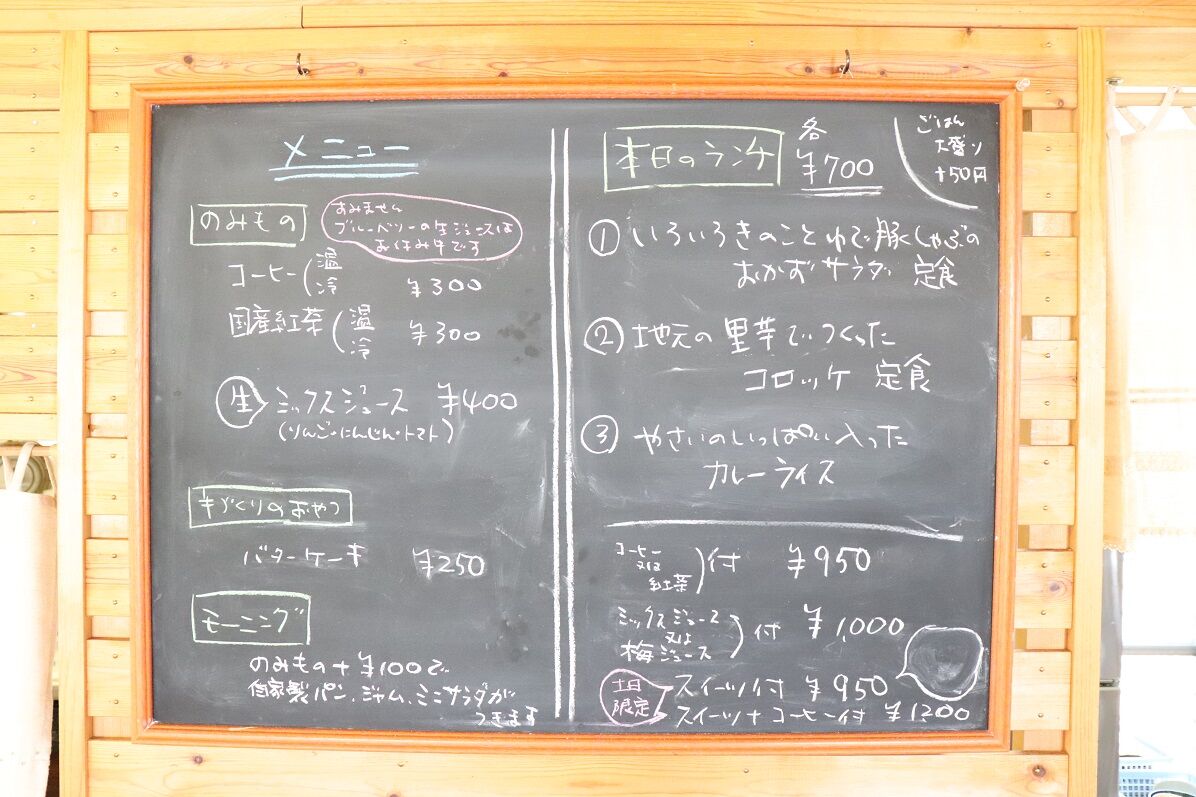 メニュー
のみもの
すみません
ブルーベリーの生ジュースは
お休み中です
コーヒー(温 冷 ¥300
国産紅茶(温 冷 ¥300
生 ミックスジュース ¥400
(りんご・にんじん・トマト)
手づくりのおやつ
バターケーキ ¥250
モーニング
のみもの+¥100で
自家製パン、ジャム、ミニサラダが
つきます
本日のランチ 各 ¥700
ごはん
大盛り
+50円
① いろいろきのことゆで豚しゃぶの
おかずサラダ 定食
② 地元の里芋でつくった
コロッケ 定食
③ やさいのいっぱい入った
カレーライス
コーヒー
又は
紅茶)付 ¥950
ミックスジュース
又は
梅ジュース)付 ¥1,000
土日
限定
スイーツ付 ¥950
スイーツ+コーヒー付 ¥1200